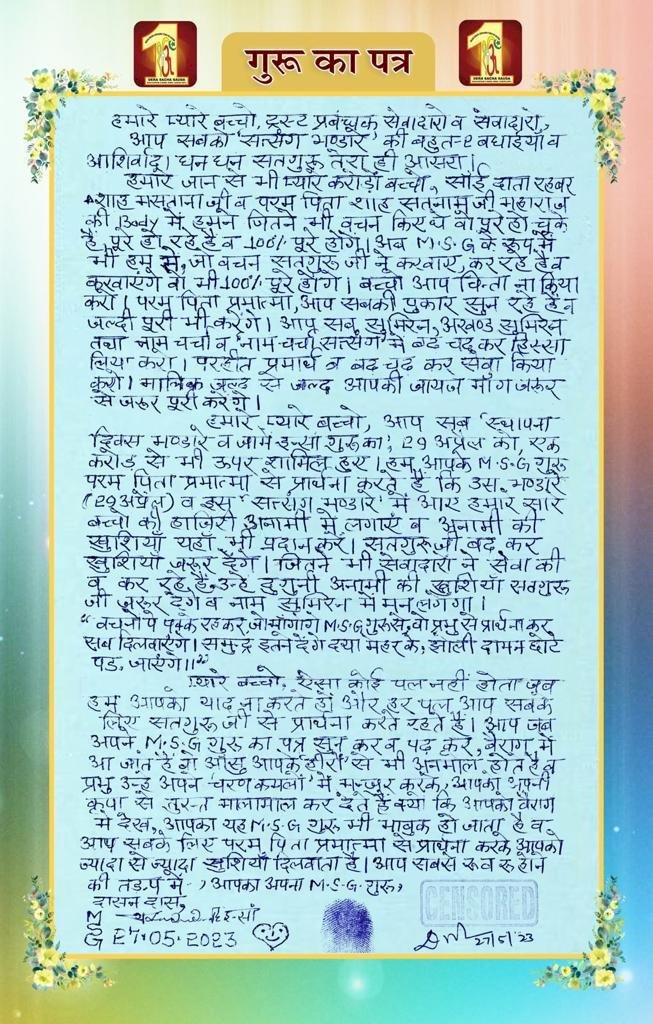 DERA SACHA SAUDA
DERA SACHA SAUDA
गुरू का पत्र
हमारे प्यारे बच्चो, ट्रस्ट प्रबंधक सेवादारो व सेवादारो,
आप सबको 'सत्संग भण्डारे' की बहुत-२ बधाईयाँ व
आशिर्वाद। धन धन सतगुरू तेरा ही आसरा।
हमारे जान से भी प्यारे करोड़ों बच्चो, साँई दाता रहबर
शाह मस्ताना जी व परम पिता शाह सतनाम जी महाराज
की Body में हमने जितने भी वचन किए थे वो पूरे हो चुके
हैं, पूरे हो रहे हैं व 100% पूरे होंगे। अब M.S.G के रूप में
भी हम से, जो वचन सतगुरू जी ने करवाए, कर रहे हैं व
करवाएंगे वो भी 100% पूरे होंगे। बच्चो आप चिंता ना किया
करो। परम पिता प्रमात्मा, आप सबकी पुकार सुन रहे हैं व
जल्दी पूरी भी करेंगे। आप सब सुमिरन, अखण्ड सुमिरन
तथा नाम चर्चा व 'नाम चर्चा सत्संग' में बढ़ चढ़ कर हिस्सा
लिया करो। परहित प्रमार्थ व बढ़ चढ़ कर सेवा किया
करो। मालिक जल्द से जल्द आपकी जायज माँग जरूर
से जरूर पूरी करेंगे।
हमारे प्यारे बच्चो, आप सब 'स्थापना
दिवस भण्डारे व जामे इन्सां गुरू का', 29 अप्रैल को, एक
करोड़ से भी ऊपर शामिल हुए। हम आपके M.S.G गुरू
परम पिता प्रमात्मा से प्रार्थना करते हैं कि उस भण्डारे
(29 अप्रैल) व इस 'सत्संग भण्डारे' में आए हमारे सारे
बच्चों की हाजिरी अनामी में लगाएं व अनामी की
खुशियाँ यहाँ भी प्रदान करें। सतगुरू जी बढ़ कर
खुशियाँ जरूर देंगे। जितने भी सेवादारों ने सेवा की
व कर रहे हैं, उन्हें दुगुनी अनामी की खुशियाँ सतगुरू
जी जरूर देंगे व नाम सुमिरन में मन लगेगा।
"वचनों पे पक्के रहकर, जो माँगोगे M.S.G गुरू से, वो प्रभु से प्रार्थना कर
सब दिलवाएंगे। समुन्द्र इतने देंगे दया मेहर के, झोली दामन छोटे
पड़ जाएंगे॥"
प्यारे बच्चो, ऐसा कोई पल नहीं होता जब
हम आपको याद ना करते हों और हर पल आप सबके
लिए सतगुरू जी से प्रार्थना करते रहते हैं। आप जब
अपने M.S.G गुरू का पत्र सुन कर व पढ़ कर, वैराग में
आ जाते हैं तो आँसु आपके हीरों से भी अनमोल होते हैं व
प्रभु उन्हें अपने 'चरण कमलों' में मन्जूर करके, आपको अपनी
कृपा से तुरन्त मालामाल कर देते हैं क्यों कि आपको वैराग
में देख, आपका यह M.S.G गुरू भी भावुक हो जाता है व
आप सबके लिए परम पिता प्रमात्मा से प्रार्थना करके आपको
ज्यादा से ज्यादा खुशियाँ दिलवाता है। आप सबसे रूबरू होने
की तड़प में -, आपका अपना M.S.G गुरू,
दासन दास,
इन्सां
MSG 27.05.2023
CENSORED